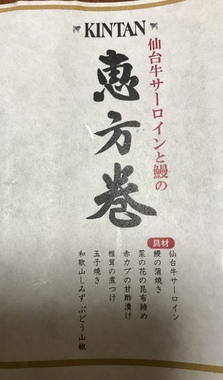 KINTAN
仙台牛サーロインと鰻の
恵方巻
具材
仙台牛サーロイン
鰻の蒲焼き
菜の花の昆布締め
赤カブの甘酢漬け
椎茸の煮つけ
玉子焼き
和歌山しみずぶどう山椒